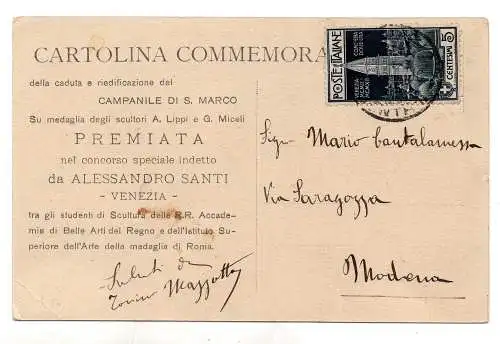 CARTOLINA COMMEMORA
della caduta e riedificazione del
CAMPANILE DI S. MARCO
Su medaglia degli scultori A. Lippi e G. Miceli
PREMIATA
nel concorso speciale indetto
da ALESSANDRO SANTI
- VENEZIA -
tra gli studenti di Scultura delle R.R. Accade-
mie di Belle Arti del Regno e dell'Istituto Su-
periore dell'Arte della medaglia di Roma.
Saluti da
Tonino Mazzotto
POSTE ITALIANE
5
CENTESIMI
Sigr Mario Cantalamessa
Via Saragozza
Modena